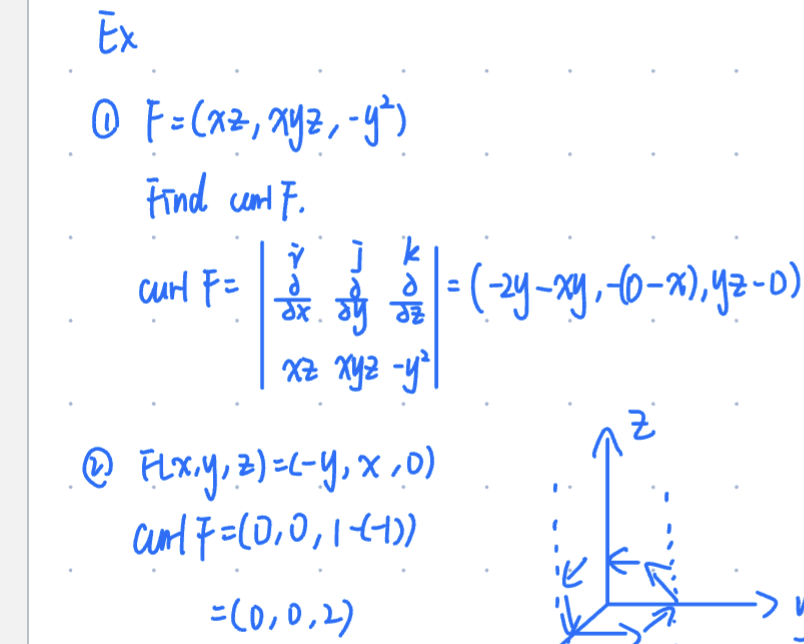 Ex
① F=(xz, xyz, -y²)
Find curl F.
curl F= | i j k ∂/∂x ∂/∂y ∂/∂z xz xyz -y² | = (-2y-xy, -(0-x), yz-0)
② F(x,y,z)=(-y, x, 0)
curl F=(0,0,1-(-1))
=(0,0,2)
z